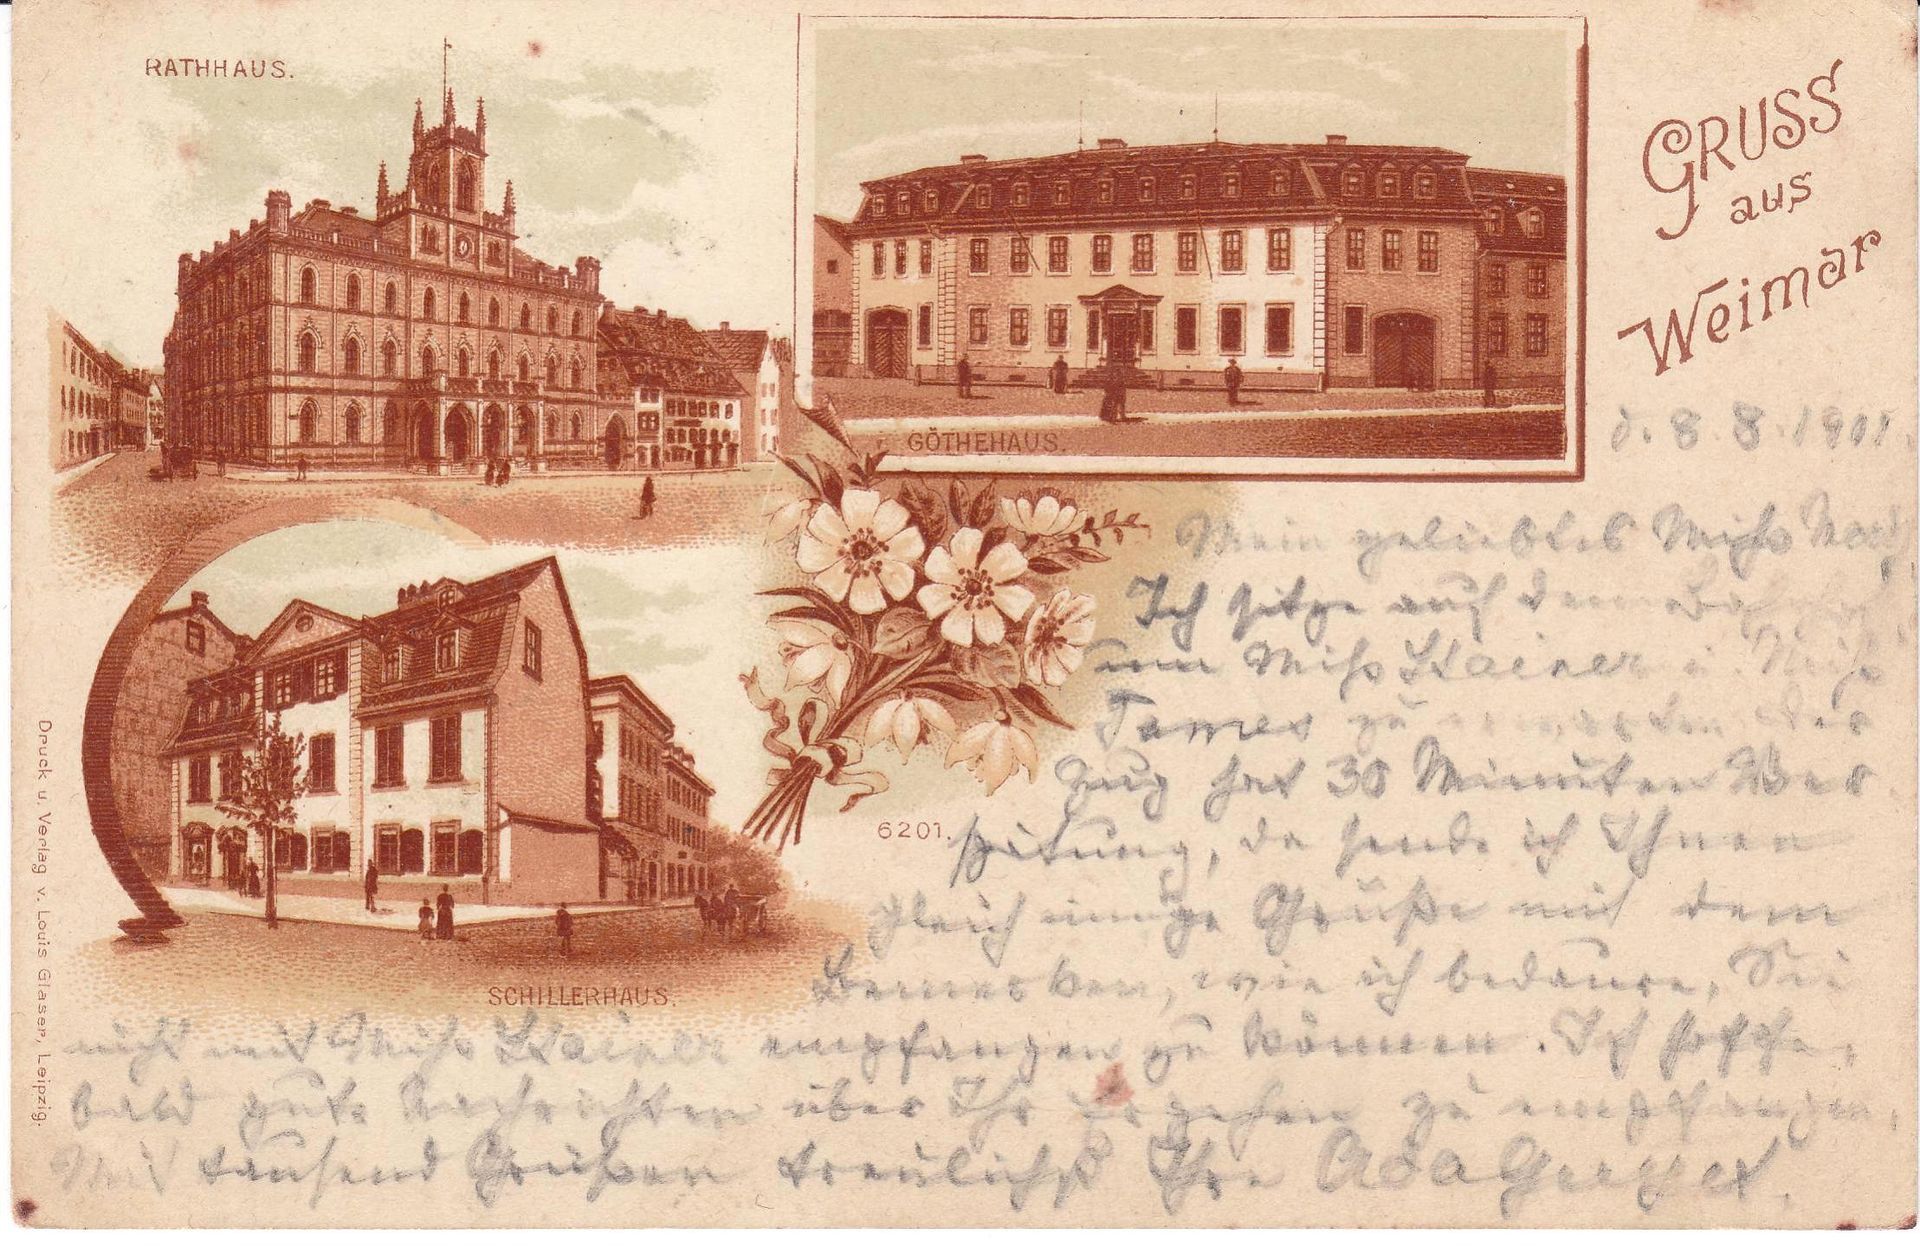 RATHHAUS.
GÖTHEHAUS.
GRUSS
aus
Weimar
SCHILLERHAUS.
6201.
Druck u. Verlag v. Louis Glaser, Leipzig.
d. 8. 8. 1901.
Mein geliebtes Miss
Ich sitze auf dem Bahnhof
um Miss Stainer u. Miss
James zu erwarten der
Zug hat 30 Minuten Ver
spätung, da sende ich Ihnen
gleich innige Grüße mit dem
Bemerken, wie ich bedaure, Sie
nicht mit Miss Stainer empfangen zu können. Ich hoffe,
bald gute Nachrichten über Ihr Ergehen zu empfangen.
Mit tausend Grüßen treulichst Ihre Ada